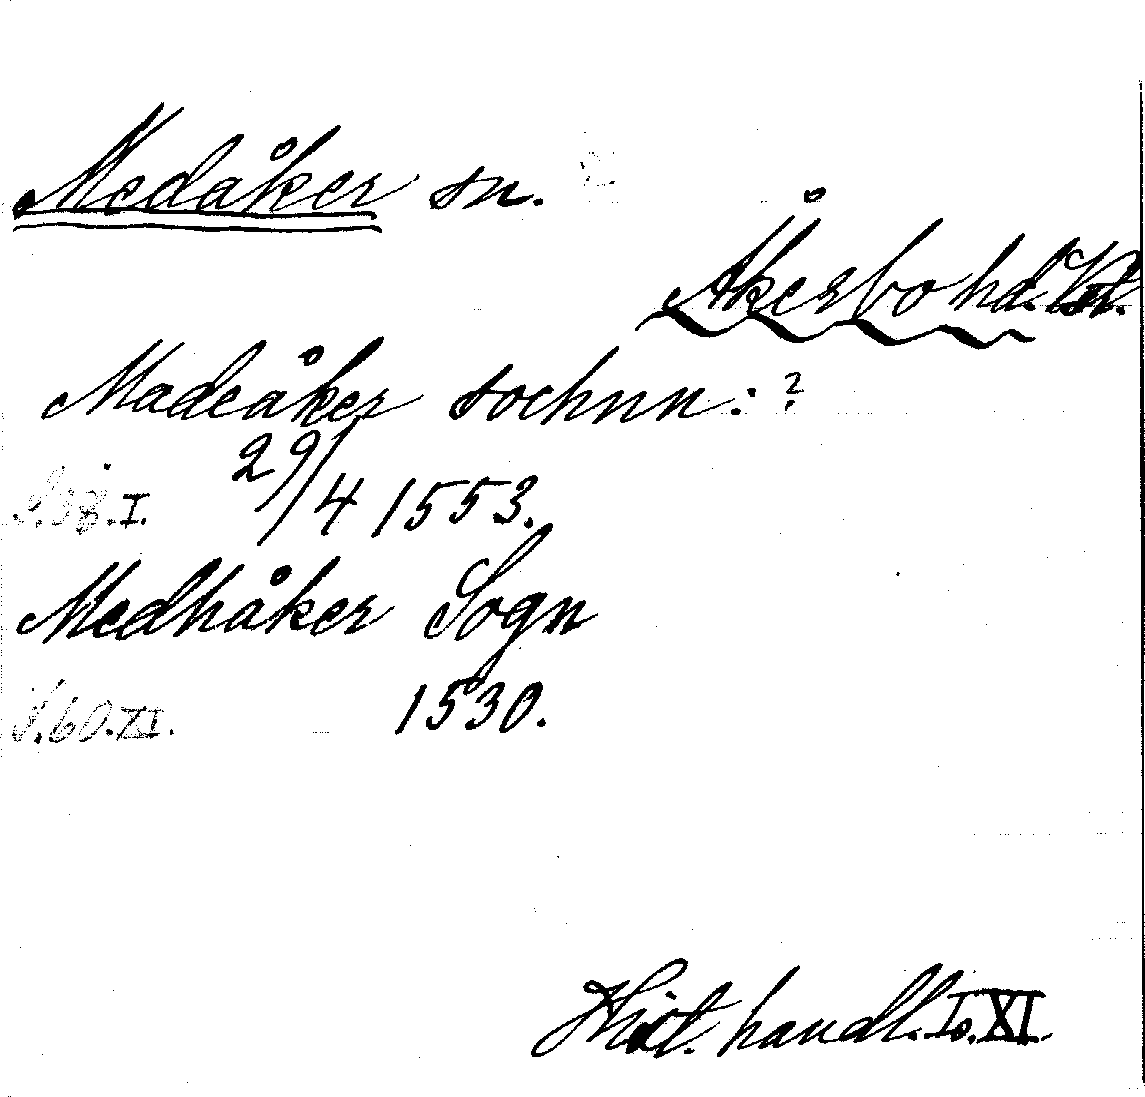 Medåker sn.
Åkerbo hd. Vstm.
Madeåker sochnn: ?
S.38.I. 29/4 1553.
Medhåker Sogn
S.60.XI. 1530.
Hist. handl. I o. XI.